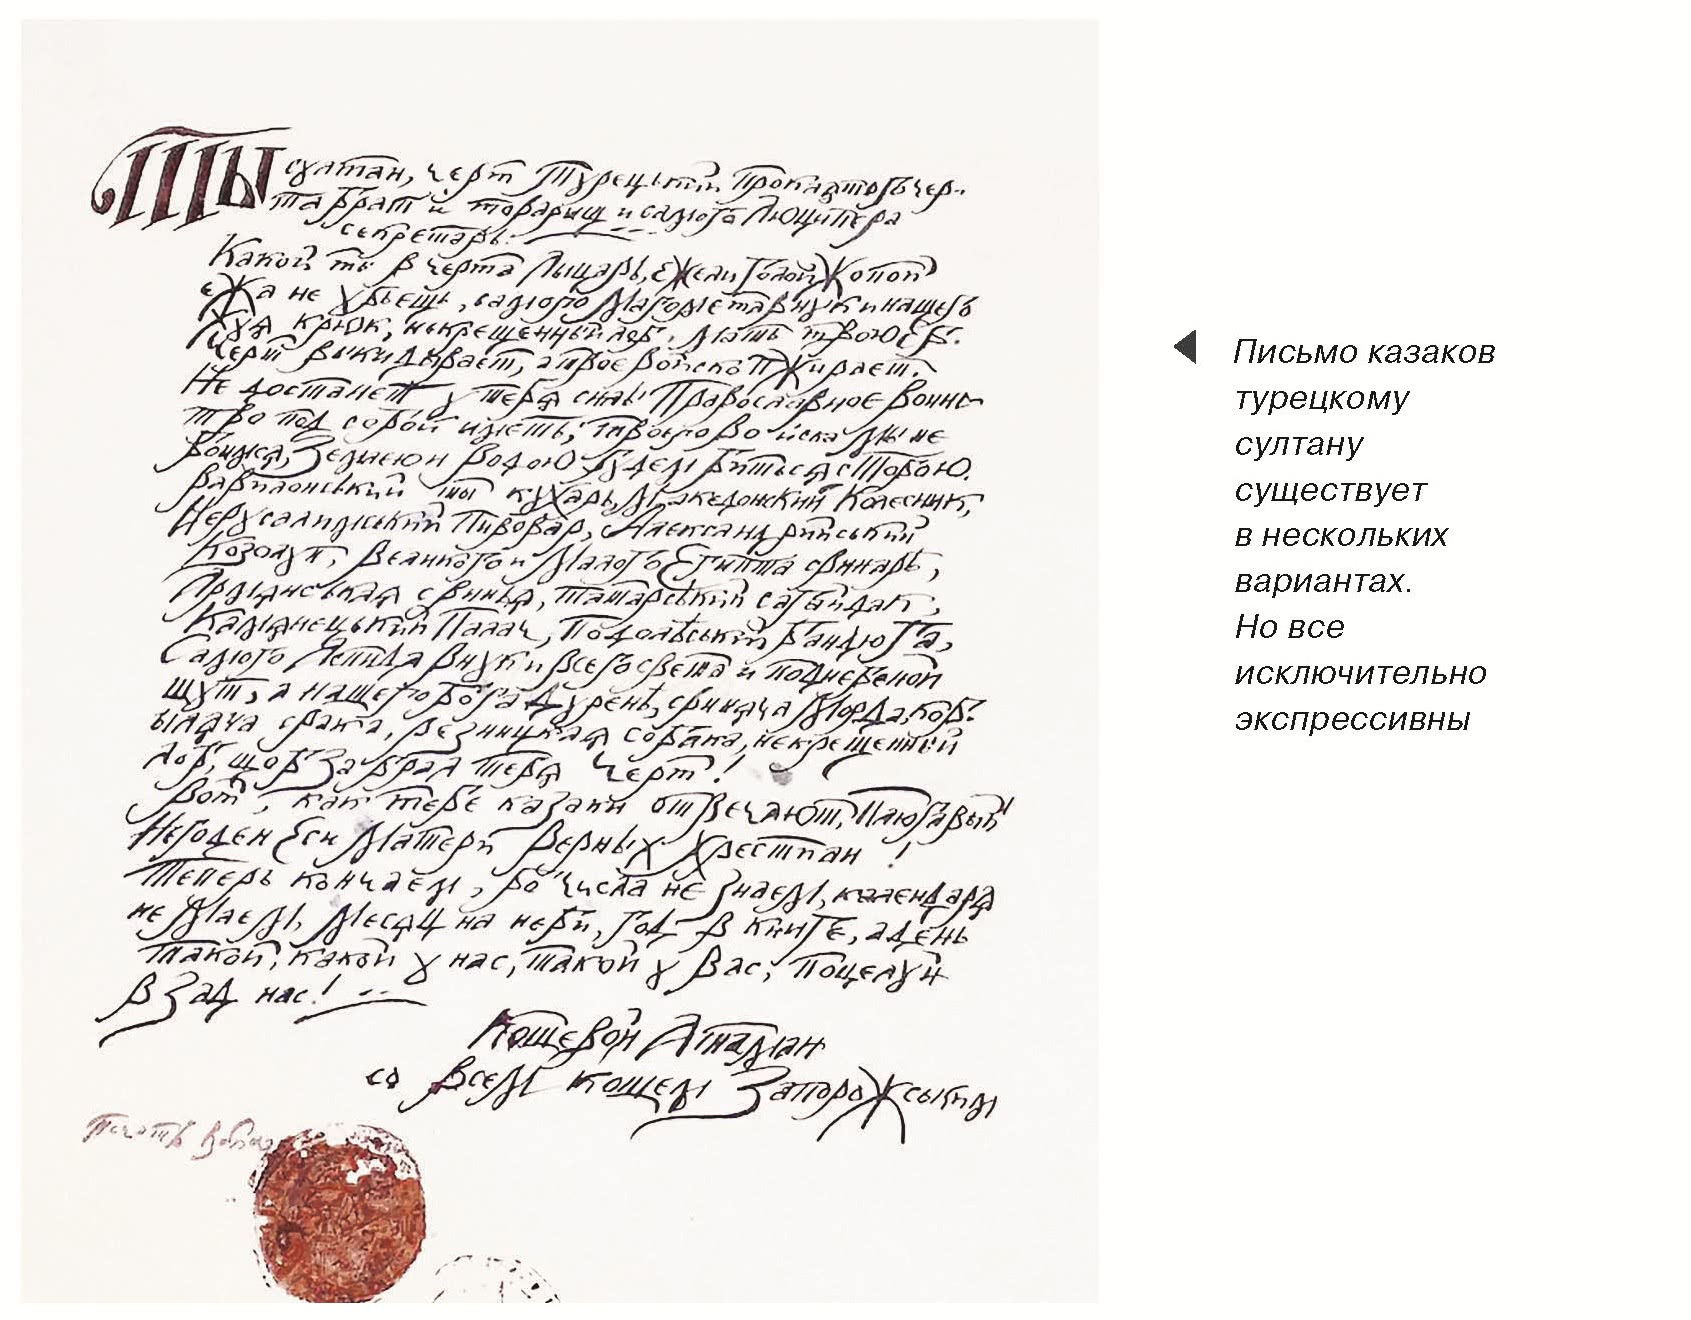 Ты султан, черт турецький проклятого чер-
та брат и товарищ и самого Люципера
секретарь.
Какой ты в черта лыцарь, ежели голой жопой
ежа не убьещь, самого Магомета внук и нашего
хуя крюк, некрещенный лоб, мать твою еб.
Черт выкидывает, а твое войско пожирает.
Не достанет у тебя силы Православное воинс
тво под собой иметь; твоего войска мы не
боимся, Землею и водою будем биться с тобою.
Вавилонський ты кухарь, Македонский колесник,
Иерусалимський пивовар, Александрийський
Козолуп, Великого и Малого Египта свинарь,
Армянськая свинья, татарський сагайдак,
Каминецький палач, Подольський бандюга,
Самого Аспида внук и всего света и подневеной
шут, а нашего бога дурень, свиняча морда, коб
ыляча срака, резницкая собака, некрещенный
лоб, щоб забрал тебя черт!
Вот, как тебе казаки отвечают, плюгавый
Негоден еси матери верных хрестиан!
Теперь кончаем, бо числа не знаем, календаря
не маем, месяц на неби, год в книге, а день
такой, какой у нас, такой у вас, поцелуй
в зад нас!
Кощевой Атаман
со всем кощем Запорожсыким
Печать
Письмо казаков
турецкому
султану
существует
в нескольких
вариантах.
Но все
исключительно
экспрессивны